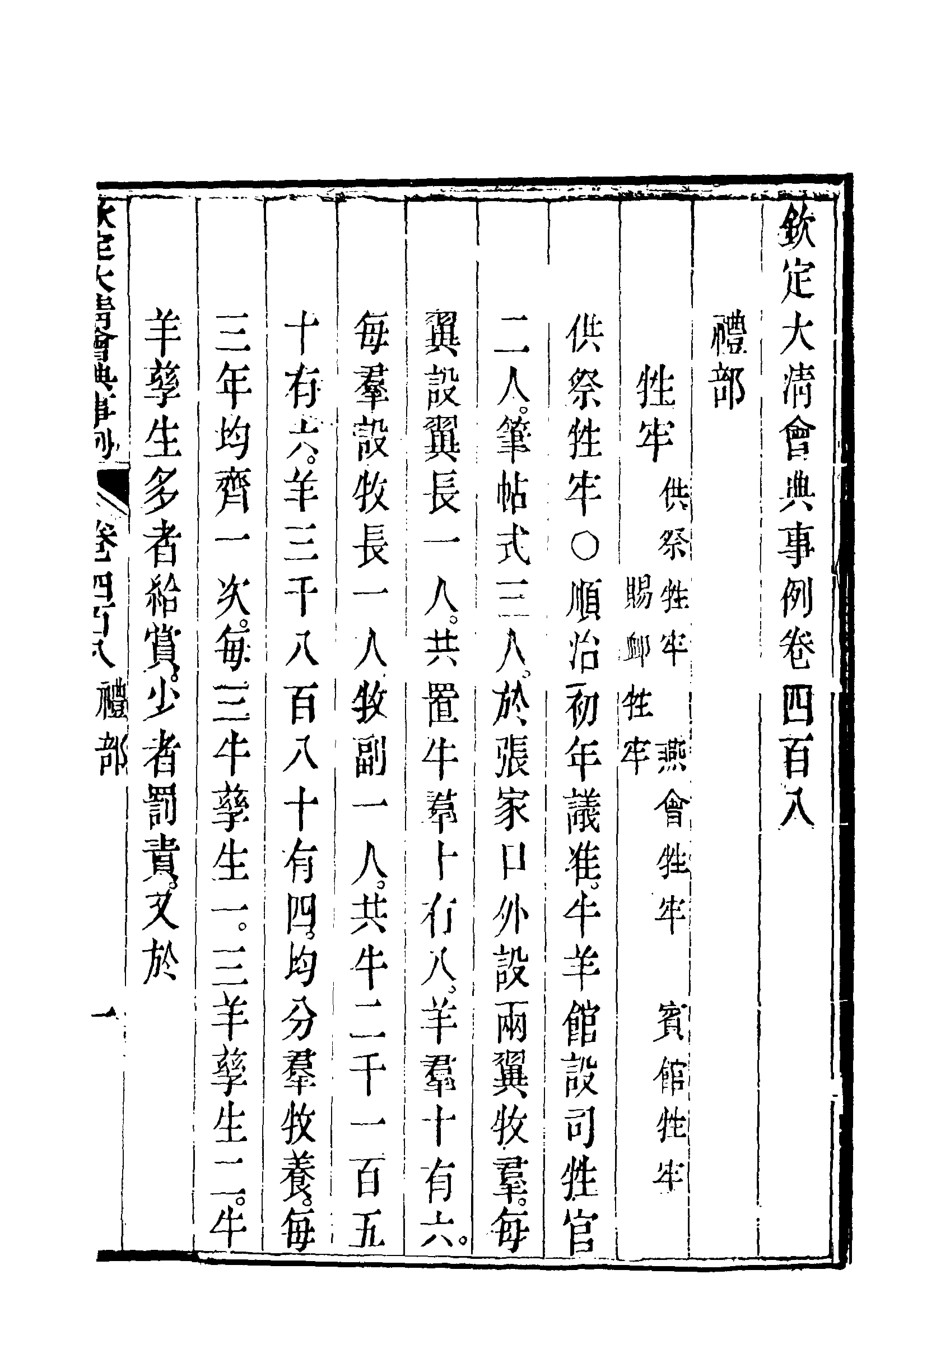 欽定大清會典事例卷四百八
禮部
牲牢 供祭牲牢 燕會牲牢 賓館牲牢
賜卹牲牢
供祭牲牢○順治初年議准。牛羊館設司牲官
二人。筆帖式三人。於張家口外設兩翼牧羣。每
翼設翼長一人。共置牛羣十有八。羊羣十有六。
每羣設牧長一人牧副一人。共牛二千一百五
十有六。羊三千八百八十有四。均分羣牧養。每
三年均齊一次。每三牛孳生一。三羊孳生二。牛
羊孳生多者給賞。少者罰責。又於
欽定大清會典事例 卷四百八 禮部 一